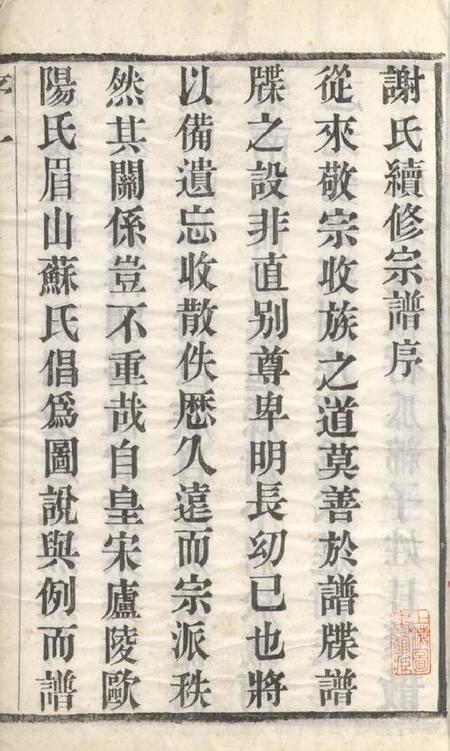 謝氏續修宗譜序
從來敬宗收族之道莫善於譜牒譜
牒之設非直别尊卑明長幼已也將
以備遺忘收散佚歷久遠而宗派秩
然其關係豈不重哉自皇宋廬陵歐
陽氏眉山蘇氏倡爲圖說與例而譜
序一